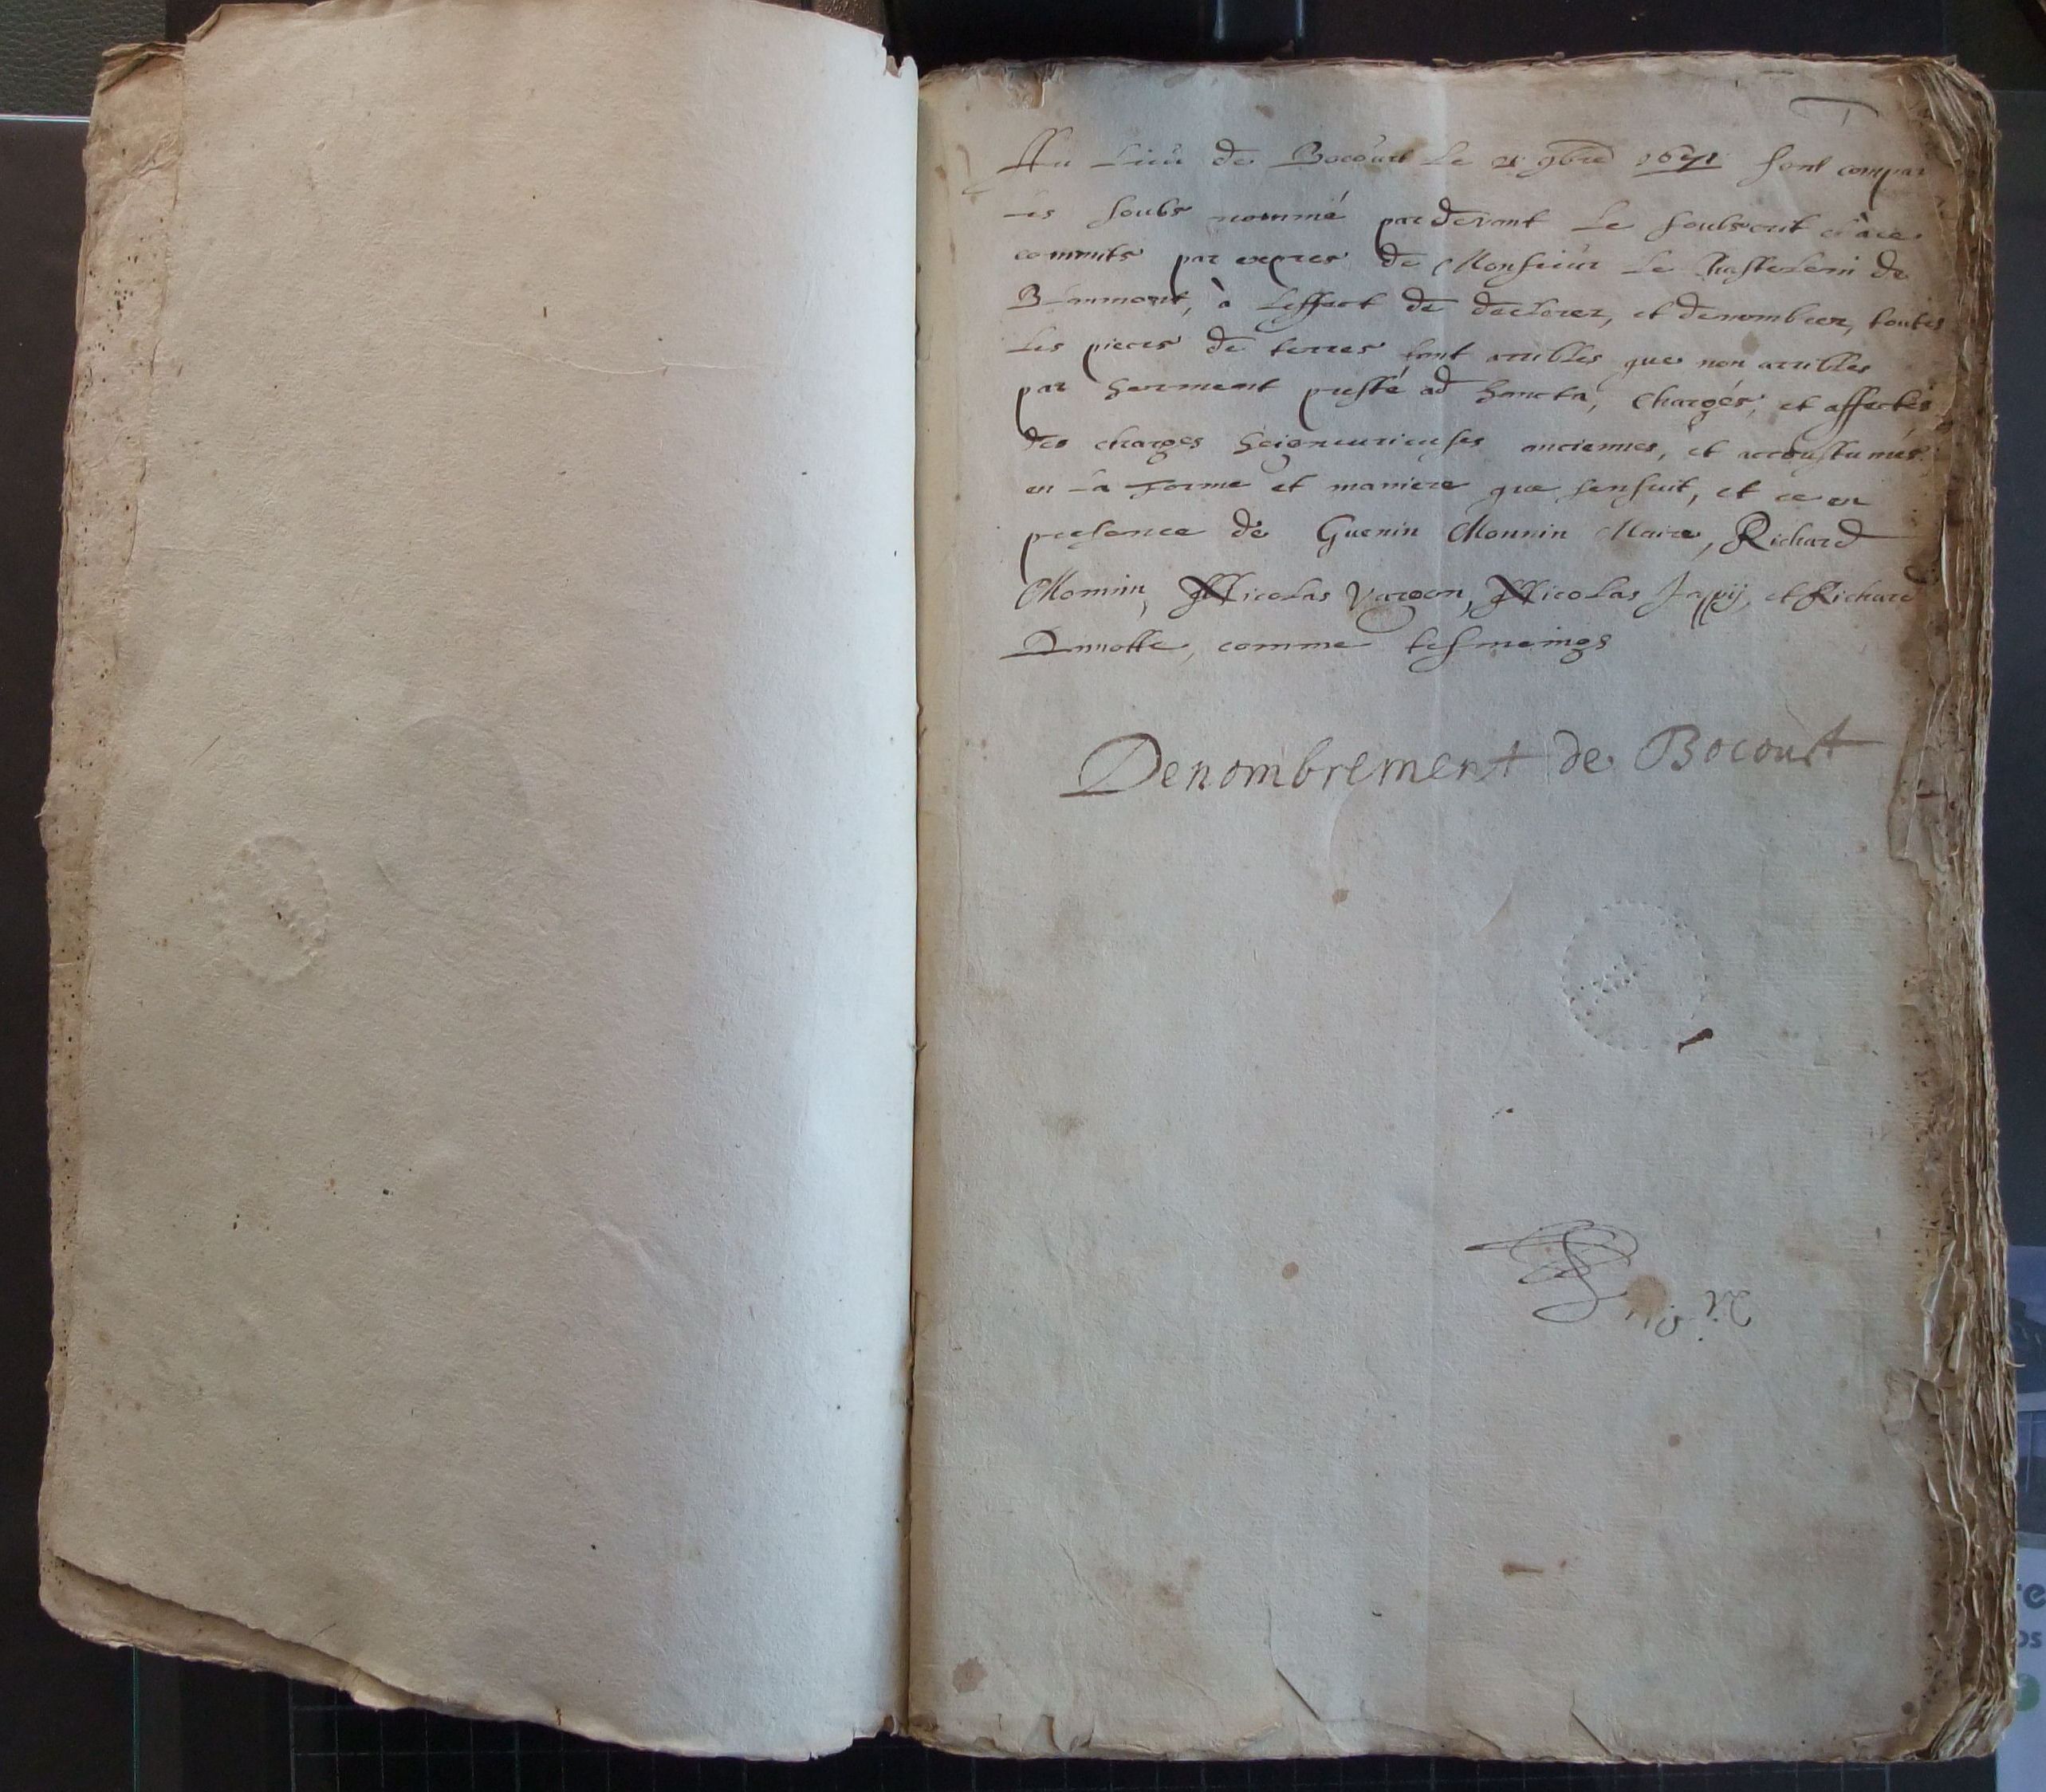 Au Lieu de Bocourt Le 21 9bre 1671 sont compar
Les soubs nommé pardevant Le soubscrit à ce
commis par expres de Monsieur Le Chastelein de
Blanmont, à Leffect de declarer, et denombrer, toutes
Les pieces de terres tant arribles que non arribles
par Serment presté ad Sancta, Chargés, et affectés
des charges Seigneurieuses anciennes, et accoustumés
en La Forme et maniere que sensuit, et ce en
presence de Guenin Monnin Maire, Richard
Monnin, Nicolas Nicolas Japij, et Richard
comme tesmoings
Denombrement de Bocourt